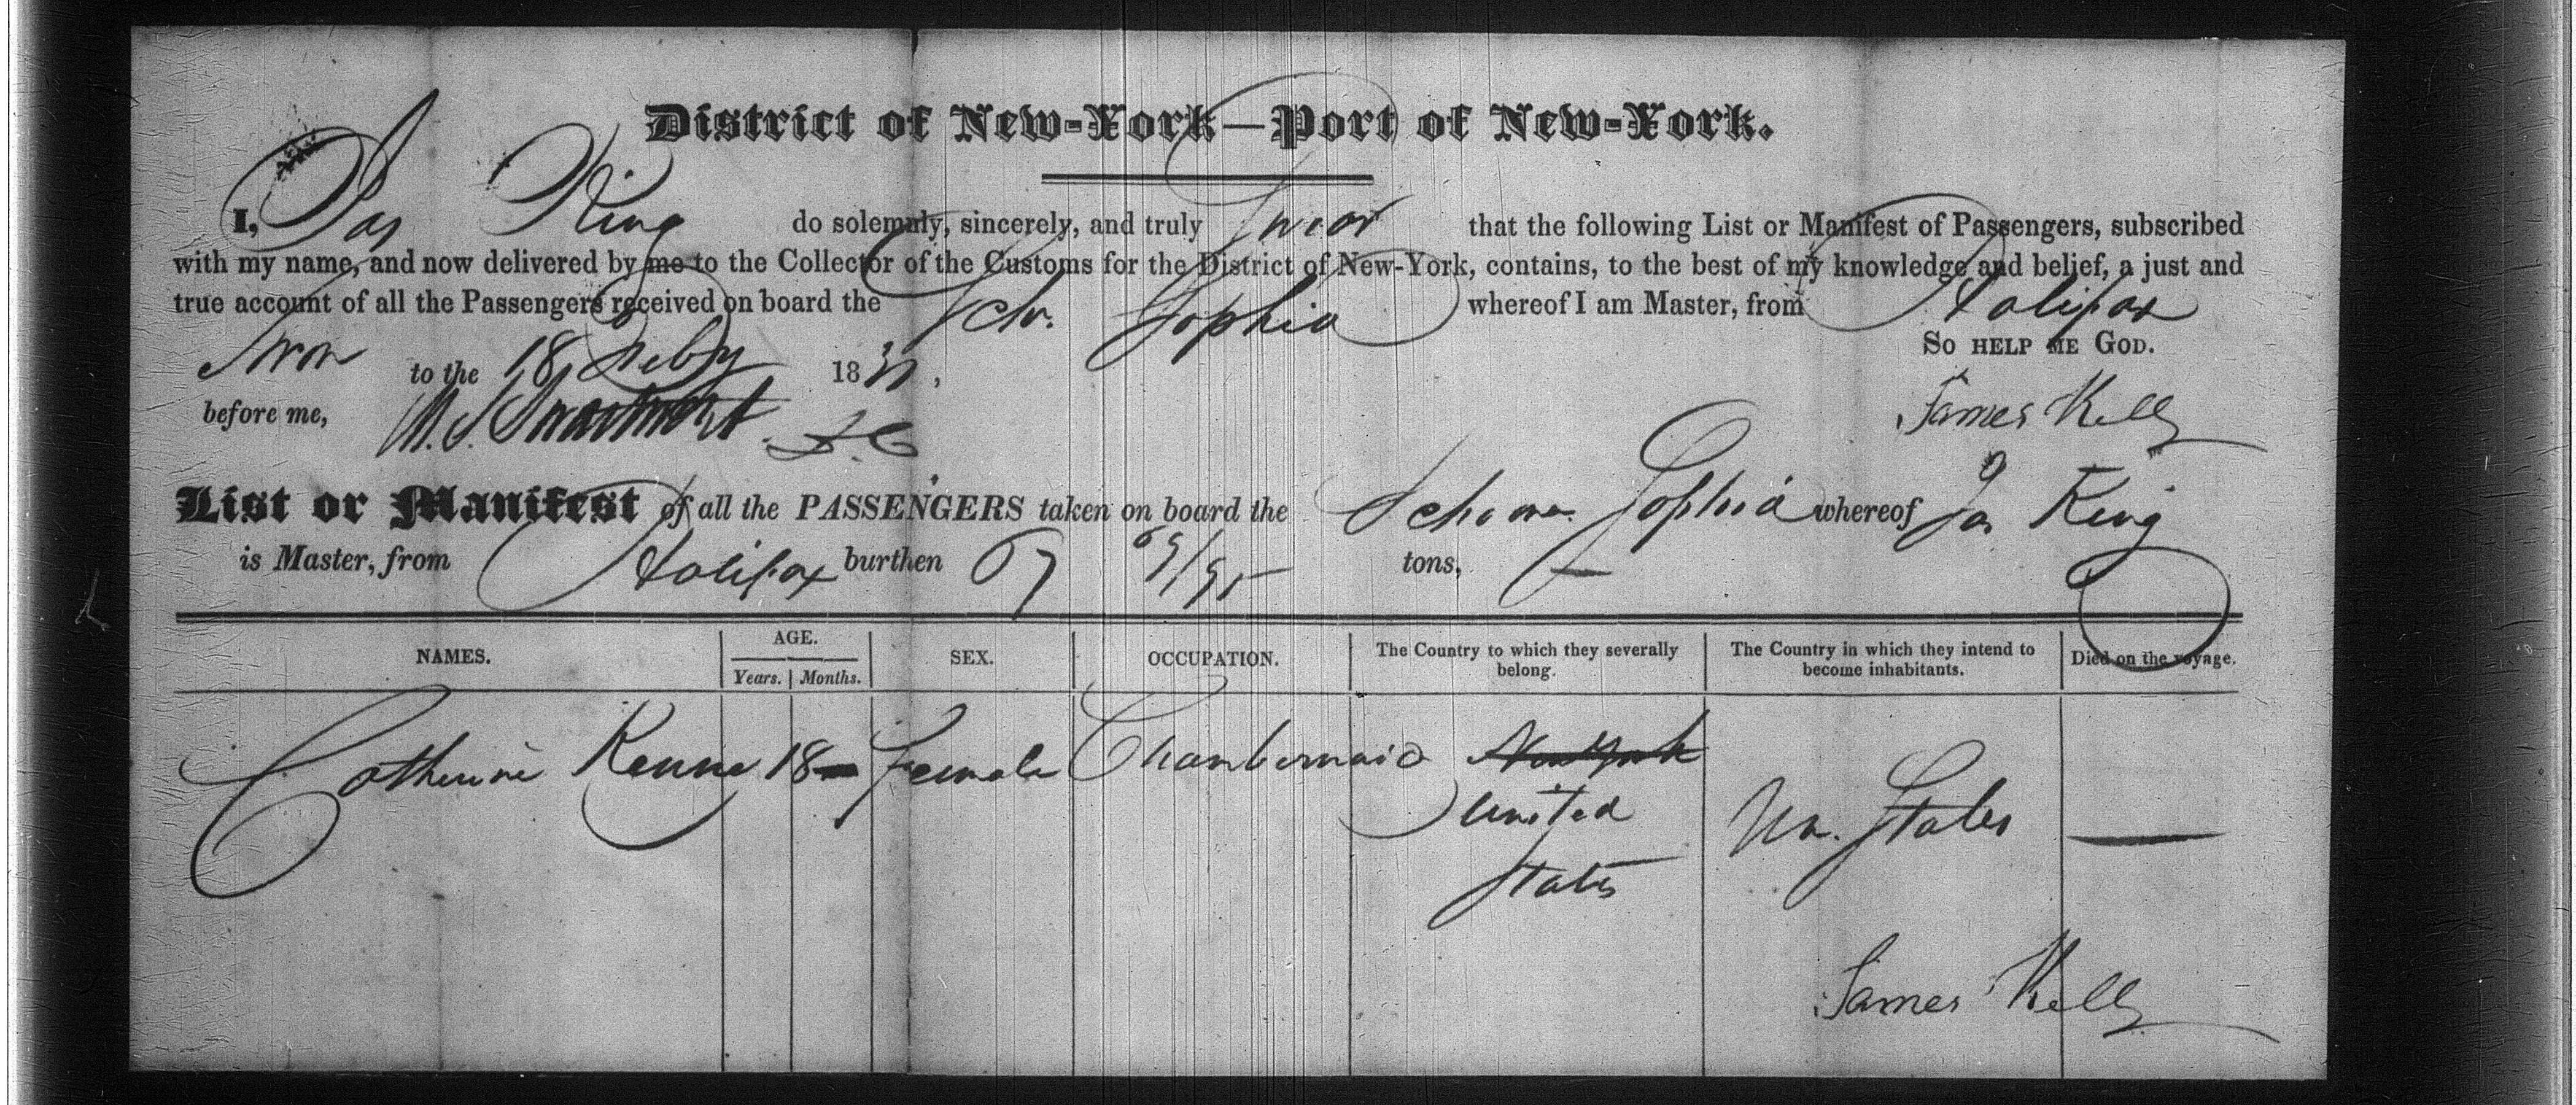 District of New-York—Port of New-York.
I, Jas King do solemnly, sincerely, and truly Swear that the following List or Manifest of Passengers, subscribed
with my name, and now delivered by me to the Collector of the Customs for the District of New-York, contains, to the best of my knowledge and belief, a just and
true account of all the Passengers received on board the Schr. Sophia whereof I am Master, from Halifax
Sworn to the 18 Feby 18
So help me God.
before me,
James Kelly
List or Manifest of all the PASSENGERS taken on board the Schooner Sophia whereof Jas King
is Master, from Halifax burthen 67 69/95 tons,
NAMES. AGE. Years. Months. SEX. OCCUPATION. The Country to which they severally belong. The Country in which they intend to become inhabitants. Died on the voyage.
Catherine 18 Female Chambermaid New York
United States Un. States
James Kelly